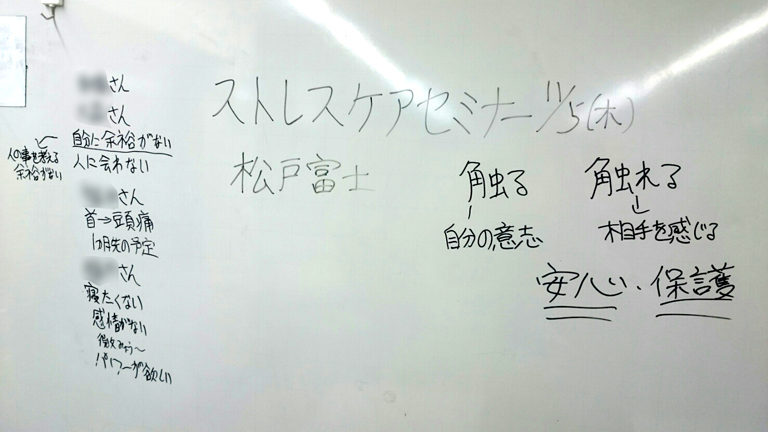 ストレスケアセミナー 11/5(木)
松戸富士
さん
さん
自分に余裕がない
人の事を考える
余裕がない
人に会わない
さん
首→頭痛
1ヵ月先の予定
さん
寝たくない
感情がない
パワーが欲しい
触る
自分の意志
触れる
相手を感じる
安心、保護